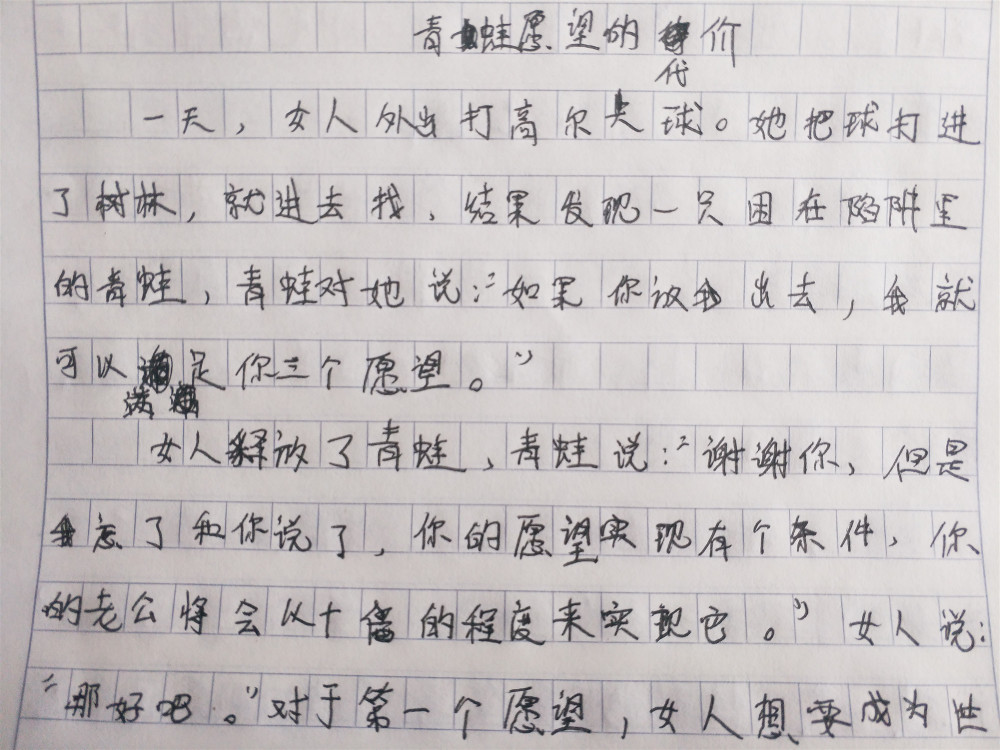 青蛙愿望的代价
一天，女人外出打高尔夫球。她把球打进
了树林，就进去找，结果发现一只困在陷阱里
的青蛙，青蛙对她说：“如果你放我出去，我就
可以满足你三个愿望。”
女人释放了青蛙，青蛙说：“谢谢你，但是
我忘了和你说了，你的愿望实现有个条件，你
的老公将会以十倍的程度来实现它。”女人说：
“那好吧。”对于第一个愿望，女人想要成为世